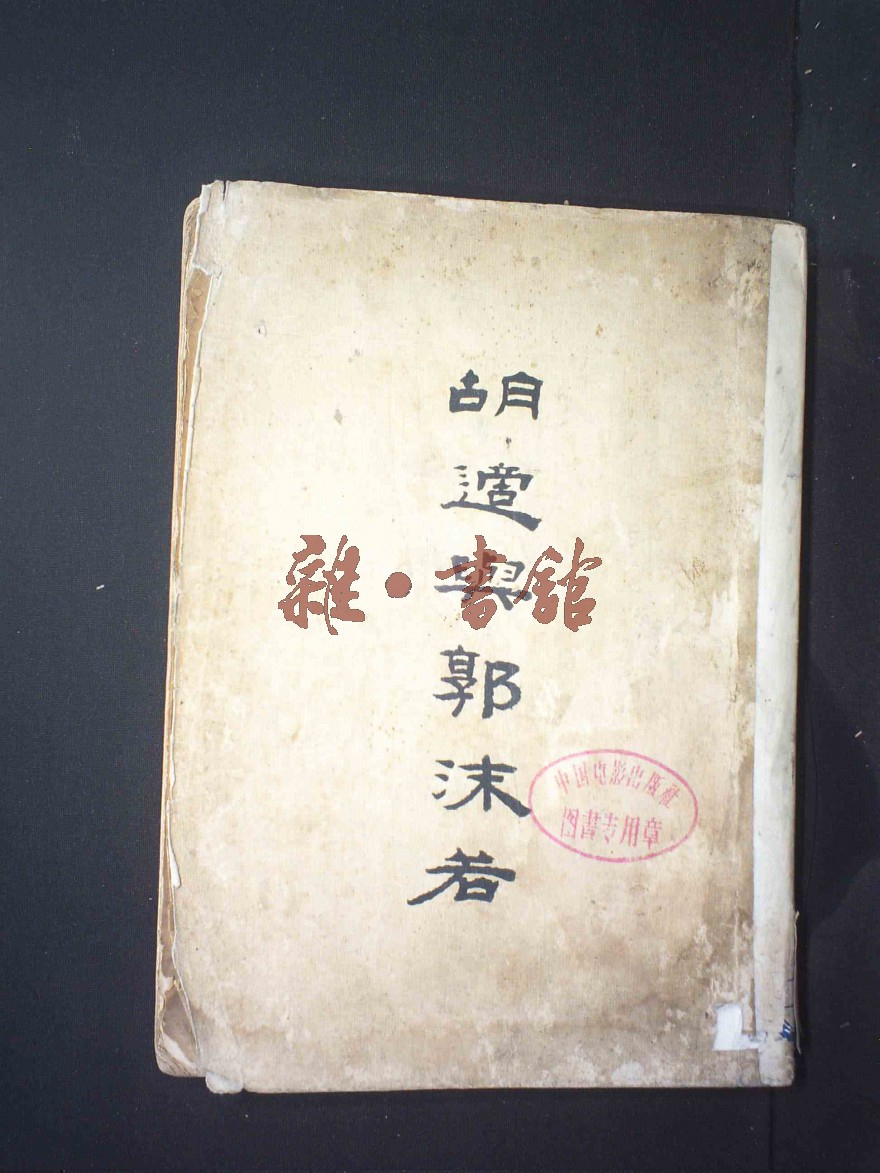 胡適與郭沫若
雜·書館
中国电影出版社
图書专用章